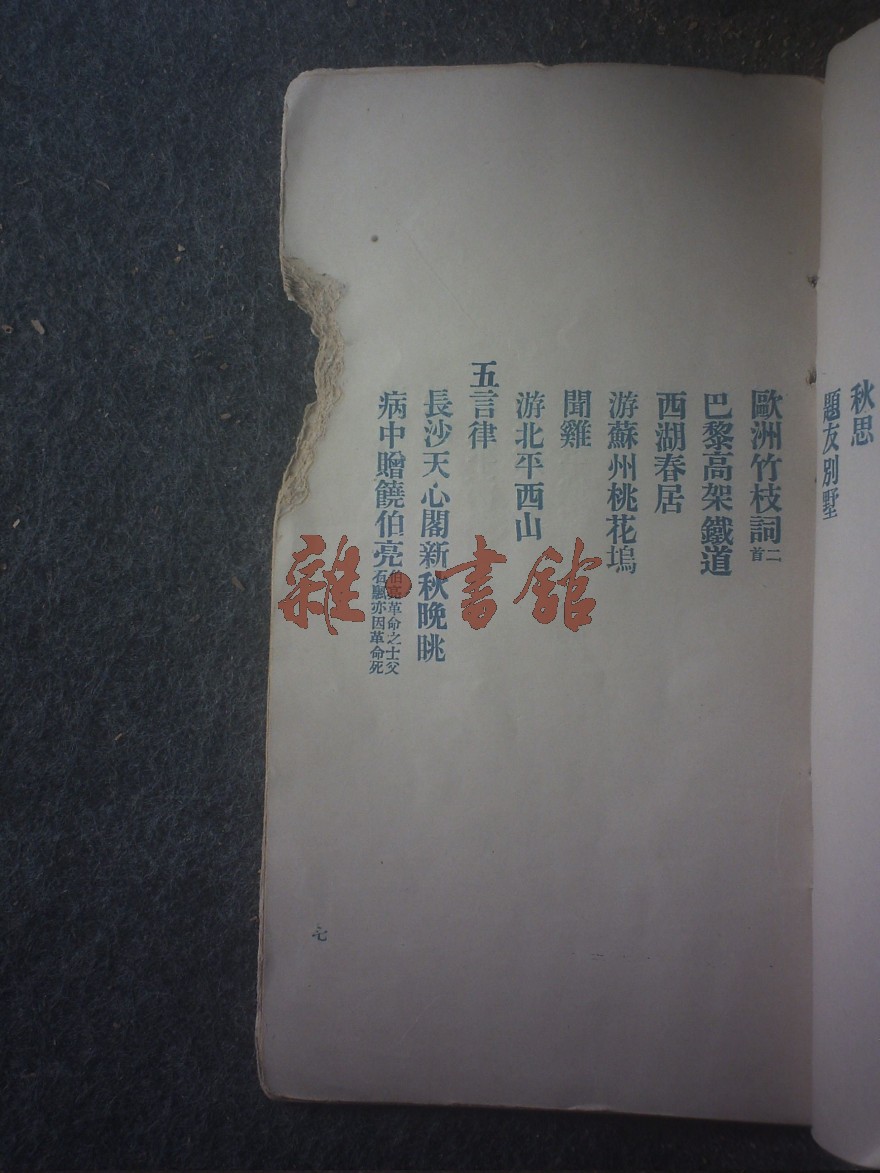 秋思
題友別墅
歐洲竹枝詞二首
巴黎高架鐵道
西湖春居
游蘇州桃花塢
聞雞
游北平西山
五言律
長沙天心閣新秋晚眺
病中贈饒伯亮伯亮革命之士父
石颿亦因革命死
七
雜·書館